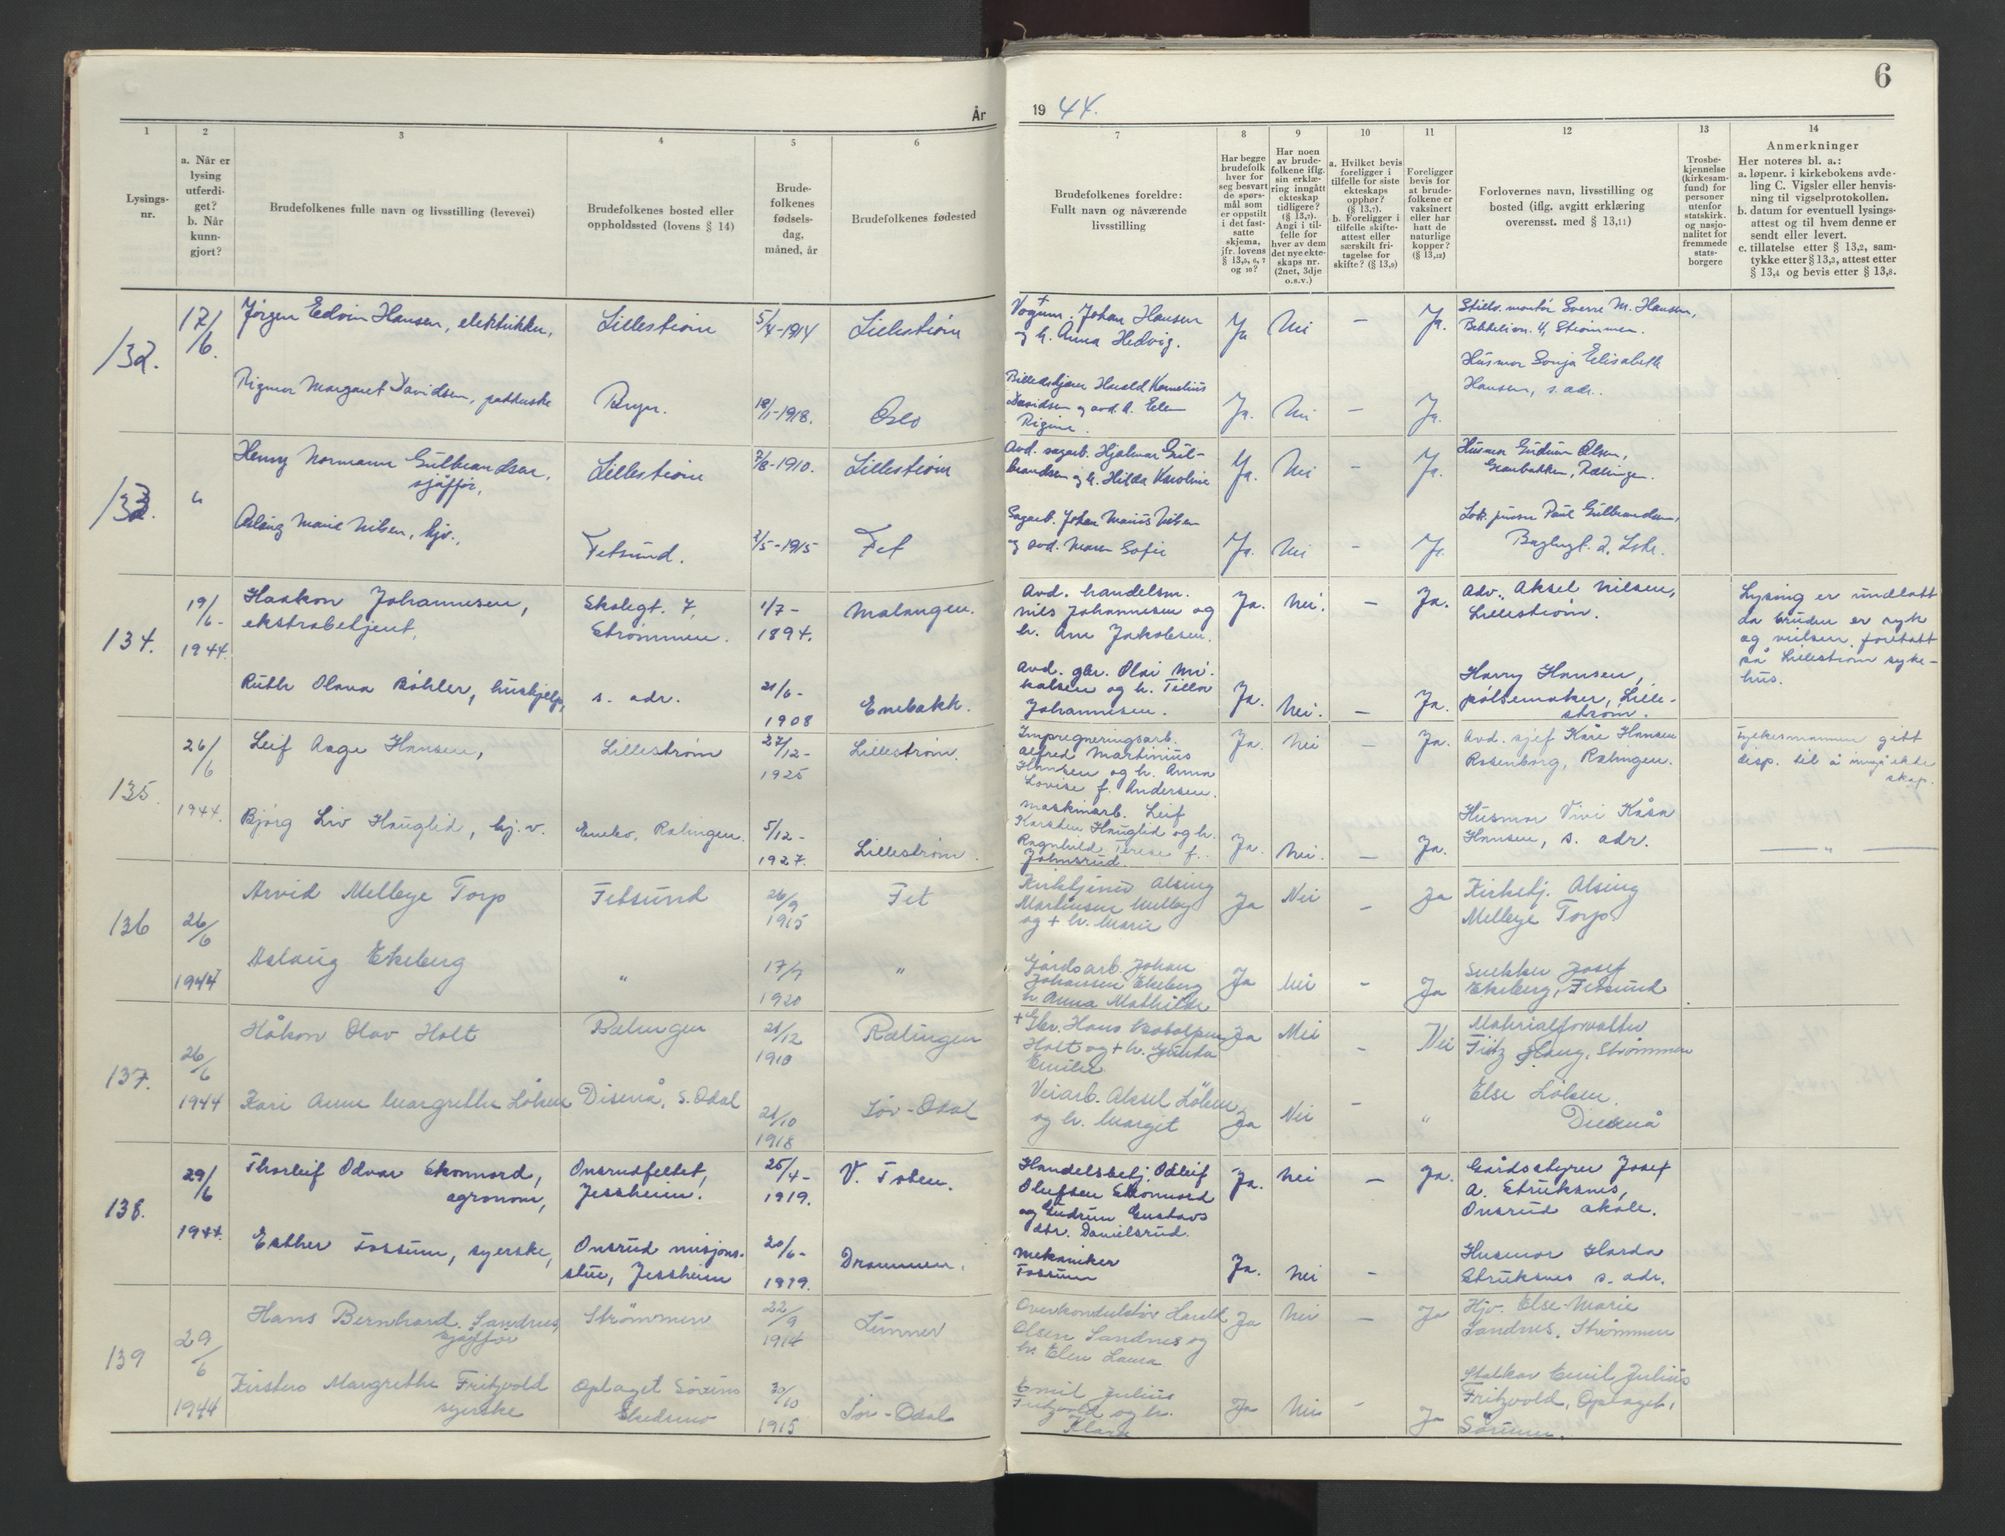 År
1944.
6
1
Lysings-
nr.
2
a. Når er
lysing
utferdi-
get?
b. Når
kunn-
gjort?
3
Brudefolkenes fulle navn og livsstilling (levevei)
4
Brudefolkenes bosted eller
oppholdssted (lovens § 14)
5
Brude-
folkenes
fødsels-
dag,
måned, år
6
Brudefolkenes fødested
7
Brudefolkenes foreldre:
Fullt navn og nåværende
livsstilling
8
Har begge
brudefolk
hver for
seg besvart
de spørs-
mål som
er oppstilt
i det fast-
satte
skjema,
jfr. lovens
§ 13,5, 6, 7
og 10?
9
Har noen
av brude-
folkene iflg.
sin erklæ-
ring inngått
ekteskap
tidligere?
(§ 13,7).
Angi i til-
felle for
hver av dem
det nye ekte-
skaps nr.
(2net, 3dje
o.s.v.)
10
a. Hvilket bevis
foreligger i
tilfelle for siste
ekteskaps
opphør?
(§ 13,7).
b. Foreligger i
tilfelle skifte-
attest eller
særskilt fri-
tagelse for
skifte? (§ 13,9)
11
Foreligger
bevis for
at brude-
folkene er
vaksinert
eller har
hatt de
naturlige
kopper?
(§ 13,12)
12
Forlovernes navn, livsstilling og
bosted (iflg. avgitt erklæring
overensst. med § 13,11)
13
Trosbe-
kjennelse
(kirkesam-
fund) for
personer
utenfor
statskirk.
og nasjo-
nalitet for
fremmede
stats-
borgere
14
Anmerkninger
Her noteres bl. a.:
a. løpenr. i kirkebokens avde-
ling C. Vigsler eller henvis-
ning til vigselprotokollen.
b. datum for eventuell lysings-
attest og til hvem denne er
sendt eller levert.
c. tillatelse etter § 13,2, sam-
tykke etter § 13,3, attest etter
§ 13,4 og bevis etter § 13,8.
132.
17/6.
Jørgen Edvin Hansen, elektriker,
Lillestrøm
5/4-1914
Lillestrøm
Vognm. Johan Hansen
og h. Anna Hedvig.
Ja
Nei
–
Ja.
Sverre M. Hansen,
4, Strømmen.
Rigmor Margaret Davidsen,
18/1-1918.
Oslo
Harald Kornelius
Davidsen og avd. h. Elen
Rigine.
Ja.
Nei
–
Ja.
Husmor Sonja Elisabeth
Hansen, s. adr.
133.
"
Henry Normann Gulbrandsen,
sjåfør,
Lillestrøm
7/8-1910.
Lillestrøm
Avd. sagarb. Hjalmar Gul-
brandsen og h. Hilda Karoline
Ja.
Nei
–
Ja.
Husmor Gudrun Olsen,
Granbakken, Rælingen.
Aslaug Marie Nilsen, hjv.,
Fetsund.
2/5-1915
Fet
Sagarb. Johan Marius Nilsen
og avd. Maren Sofie
Ja.
Nei
–
Ja.
Paul Gulbrandsen,
134.
19/6-
1944.
Haakon Johannesen,
ekstrabetjent,
Skolegt. 7,
Strømmen.
1/7-
1894.
Malangen.
Avd. handelsm.
Nils Johannesen og
h. Ane Jakobsen.
Ja.
Nei.
–
Ja.
Adv. Aksel Nilsen,
Lillestrøm.
Lysing er undlatt
da bruden er syk
og vielsen foretatt
på Lillestrøm syke-
hus.
Ruth Olava Bøhler, hushjelp,
s. adr.
21/6-
1908
Enebakk.
Avd. gbr. Olai Mi-
kalsen og h. Tilla
Johannesen.
Ja.
Nei.
–
Ja.
Harry Hansen,
pølsemaker, Lille-
strøm.
135.
26/6
1944.
Leif Aage Hansen,
Lillestrøm
27/12-
1925
Lillestrøm.
Impregneringsarb.
Alfred Martinius
Hansen og h. Anna
Lovise f. Andersen.
Ja.
Nei
–
Ja.
Avd. sjef Kåre Hansen
Rosenborg, Rælingen.
Fylkesmannen gitt
disp. til å inngå ekte
skap.
Bjørg Liv Hauglid, hj.v.
Eneko, Rælingen.
5/12-
1927.
Lillestrøm.
Maskinarb. Leif
Karsten Hauglid og h.
Ragnhild Terese f.
Johnsrud.
Ja.
Nei.
–
Ja.
Husmor Vivi Kåsa
Hansen, s. adr.
— " —
136
26/6
1944
Arvid Melleye Torp
Fetsund
26/9
1915
Fet
Kirketjener Alsing
Martinsen
og + h. Marie
Ja
Nei
–
Ja
Kirketj. Alsing
Melleye Torp.
Aslaug Ekeberg
"
17/7
1920
"
Gårdsarb. Johan
Johansen Ekeberg
h. Anna Mathilde
Ja
Nei
–
Ja
Snekker Josef
Ekeberg, Fetsund
137.
26/6
1944
Håkon Olav Holt
Rælingen
21/12
1910
Rælingen
+ Gbr. Hans
Holt og + h. Gunda
Emilie
Ja
Nei
–
Nei
Materialforvalter
Fritz Haug, Strømmen
Kari Anne Margrethe Løken
Disenå, S. Odal
21/10
1918
Sør-Odal
Veiarb. Aksel Løken
og h. Margit
Ja
Nei
–
"
Else Løken.
Disenå
138.
29/6
1944.
Thorleif Odvar Skonnord,
agronom,
Onsrudfeltet,
Jessheim.
25/4-
1919.
V. Toten.
Handelsbetj. Odleif
Olufsen Skonnord
og Gudrun Gustavs
dtr. Danielsrud.
Ja.
Nei
–
Ja.
Gårdsstyrer Josef
A. Struksnes,
Onsrud skole.
Esther Fossum, syerske,
Onsrud misjons-
stue, Jessheim
20/6-
1919.
Drammen.
Mekaniker
Fossum
Ja.
Nei
–
Husmor Harda
Struksnes s. adr.
139
29/6
1944
Hans Bernhard Sandnes,
sjåfør
Strømmen
22/9
1914
Lunner
Overkonduktør Harald
Olsen Sandnes og
h. Elen Laura
Ja
Nei
–
Ja
Hjv. Else-Marie
Sandnes, Strømmen
Kirsten Margrethe Fritzvold
syerske
Oplaget Sørum
Skedsmo
30/10
1915
Sør-Odal
Emil Julius
Fritzvold og h.
Klara
Ja
Nei
–
Ja
Emil Julius
Fritzvold, Oplaget,
Sørum.